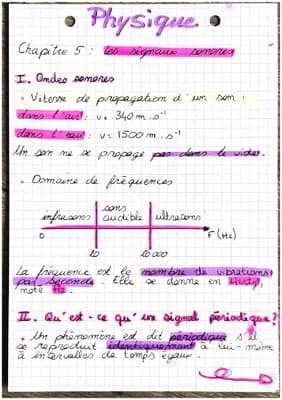 Physique
Chapitre 5 : Les signaux sonores
I. Ondes sonores
• Vitesse de propagation d'un son :
dans l'air : v = 340 m.s⁻¹
dans l'eau : v = 1500 m.s⁻¹
Un son ne se propage pas dans le vide.
• Domaine de fréquences
infrasons sons audible ultrasons
0 20 20 000 F (Hz)
La fréquence est le nombre de vibrations
par seconde. Elle se donne en Hertz,
noté Hz.
II. Qu'est-ce qu'un signal périodique?
• Un phénomène est dit périodique s'il
se reproduit identiquement à lui-même
à intervalles de temps égaux.